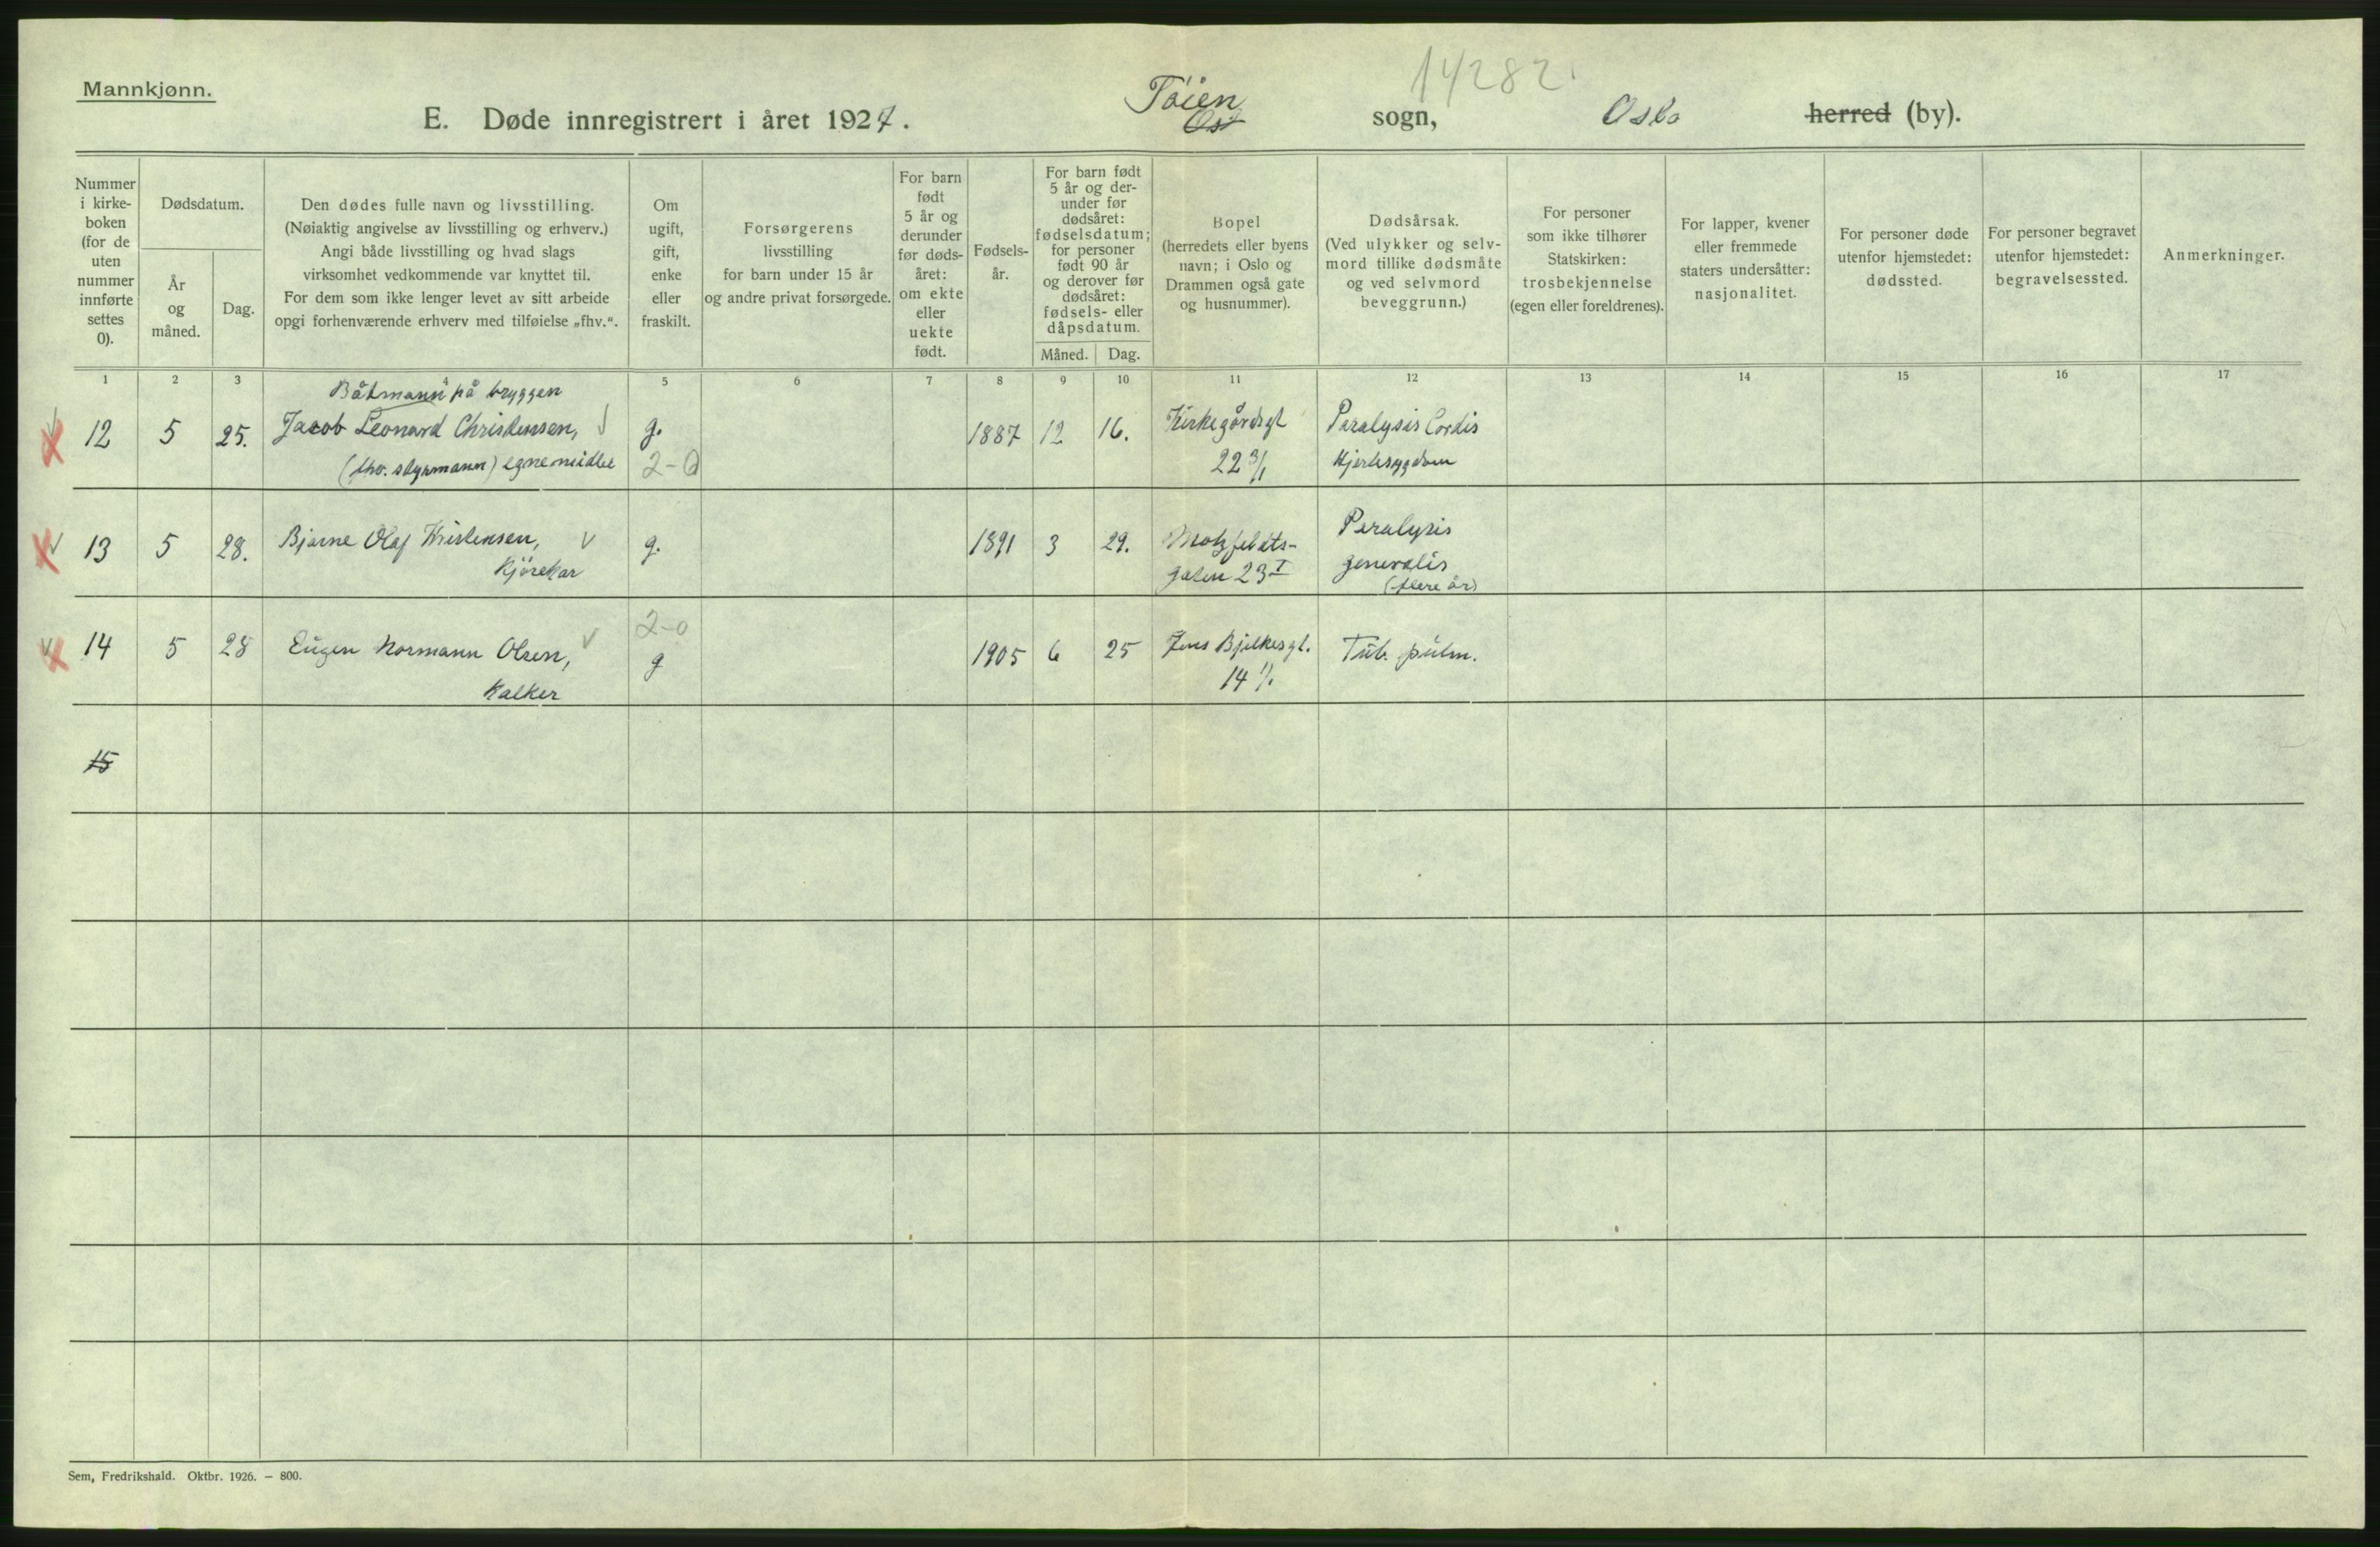 14282.
Mannkjønn.
E. Døde innregistrert i året 1927.
Töien
Ost
sogn,
Oslo
herred (by).
Nummer i kirke-boken (for de uten nummer innførte settes 0).
Dødsdatum.
År og måned.
Dag.
Den dødes fulle navn og livsstilling.
(Nøiaktig angivelse av livsstilling og erhverv.)
Angi både livsstilling og hvad slags
virksomhet vedkommende var knyttet til.
For dem som ikke lenger levet av sitt arbeide
opgi forhenværende erhverv med tilføielse „fhv.“.
Om ugift, gift, enke eller fraskilt.
Forsørgerens
livsstilling
for barn under 15 år
og andre privat forsørgede.
For barn født 5 år og derunder før døds-året: om ekte eller uekte født.
Fødsels-år.
For barn født 5 år og der-under før dødsåret: fødselsdatum; for personer født 90 år og derover før dødsåret: fødsels- eller dåpsdatum.
Måned.
Dag.
Bopel
(herredets eller byens
navn; i Oslo og
Drammen også gate
og husnummer).
Dødsårsak.
(Ved ulykker og selv-
mord tillike dødsmåte
og ved selvmord
beveggrunn.)
For personer
som ikke tilhører
Statskirken:
trosbekjennelse
(egen eller foreldrenes).
For lapper, kvener
eller fremmede
staters undersåtter:
nasjonalitet.
For personer døde
utenfor hjemstedet:
dødssted.
For personer begravet
utenfor hjemstedet:
begravelsessted.
Anmerkninger.
1 2 3 4 5 6 7 8 9 10 11 12 13 14 15 16 17
Båtmann på bryggen
12 5 25. Jacob Leonard Christensen, g. 1887 12 16. Kirkegårdsgt Paralysis Cordis
(fhv. styrmann) egne midler 2-0 22 3/1 Hjertesygdom
13 5 28. Bjarne Olaf Kristensen, g. 1891 3 29. Motzfeldts- Paralysis
Kjörekar gaten 23 I generalis
(flere år)
2-0
14 5 28 Eugen Normann Olsen, g 1905 6 25 Jens Bjelkesgt. Tub. pulm.
Kalker 14
15
Sem, Fredrikshald. Oktbr. 1926. – 800.